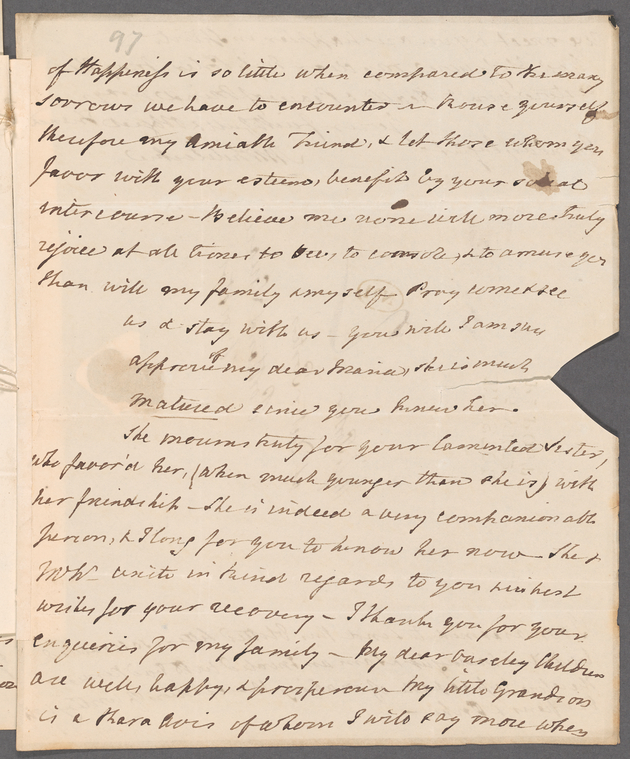 97
of Happiness is so little when compared to the many
sorrows we have to encounter — Rouse yourself
therefore my Amiable Friend, & let those whom you
favor with your esteem, benefit by your social
intercourse — Believe me none will more truly
rejoice at all times to see, to console, & to amuse you
than will my family & myself. Pray come & see
us & stay with us — you will I am sure
approve of my dear Maria, she is much
matured since you knew her.
She mourns truly for your lamented Sister,
who favor'd her, (when much younger than she is) with
her friendship — She is indeed a very companionable
person, & I long for you to know her now — She &
unite in kind regards to you & best
wishes for your recovery — I thank you for your
enquiries for my family — My dear Ouseley Children
are well, happy, & prosperous My little Grandson
is a Rara Avis of whom I will say more when